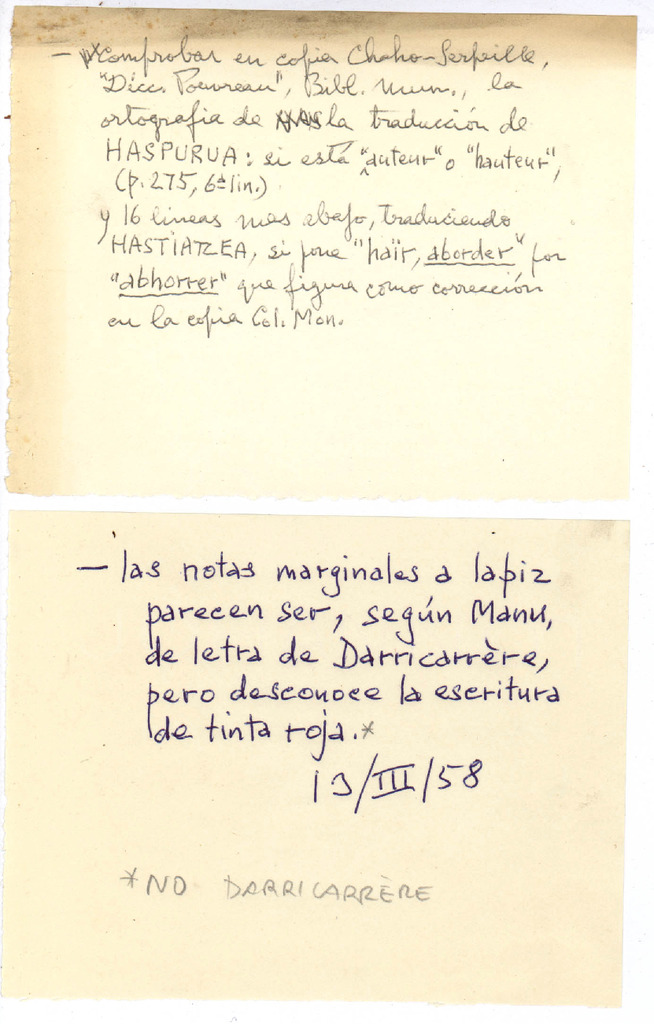 — Comprobar en copia Chaho-Serpeille,
"Dicc. Pouvreau", Bibl. mun., la
ortografia de la traducción de
HASPURUA: si está "auteur" o "hauteur",
(p. 275, 6ª lin.)
y 16 lineas mas abajo, traduciendo
HASTIATZEA, si pone "haïr, aborder" por
"abhorrer" que figura como corrección
en la copia Col. Mon.
— las notas marginales a lapiz
parecen ser, según Manu,
de letra de Darricarrère,
pero desconoce la escritura
de tinta roja.*
13/III/58
*NO DARRICARRÈRE